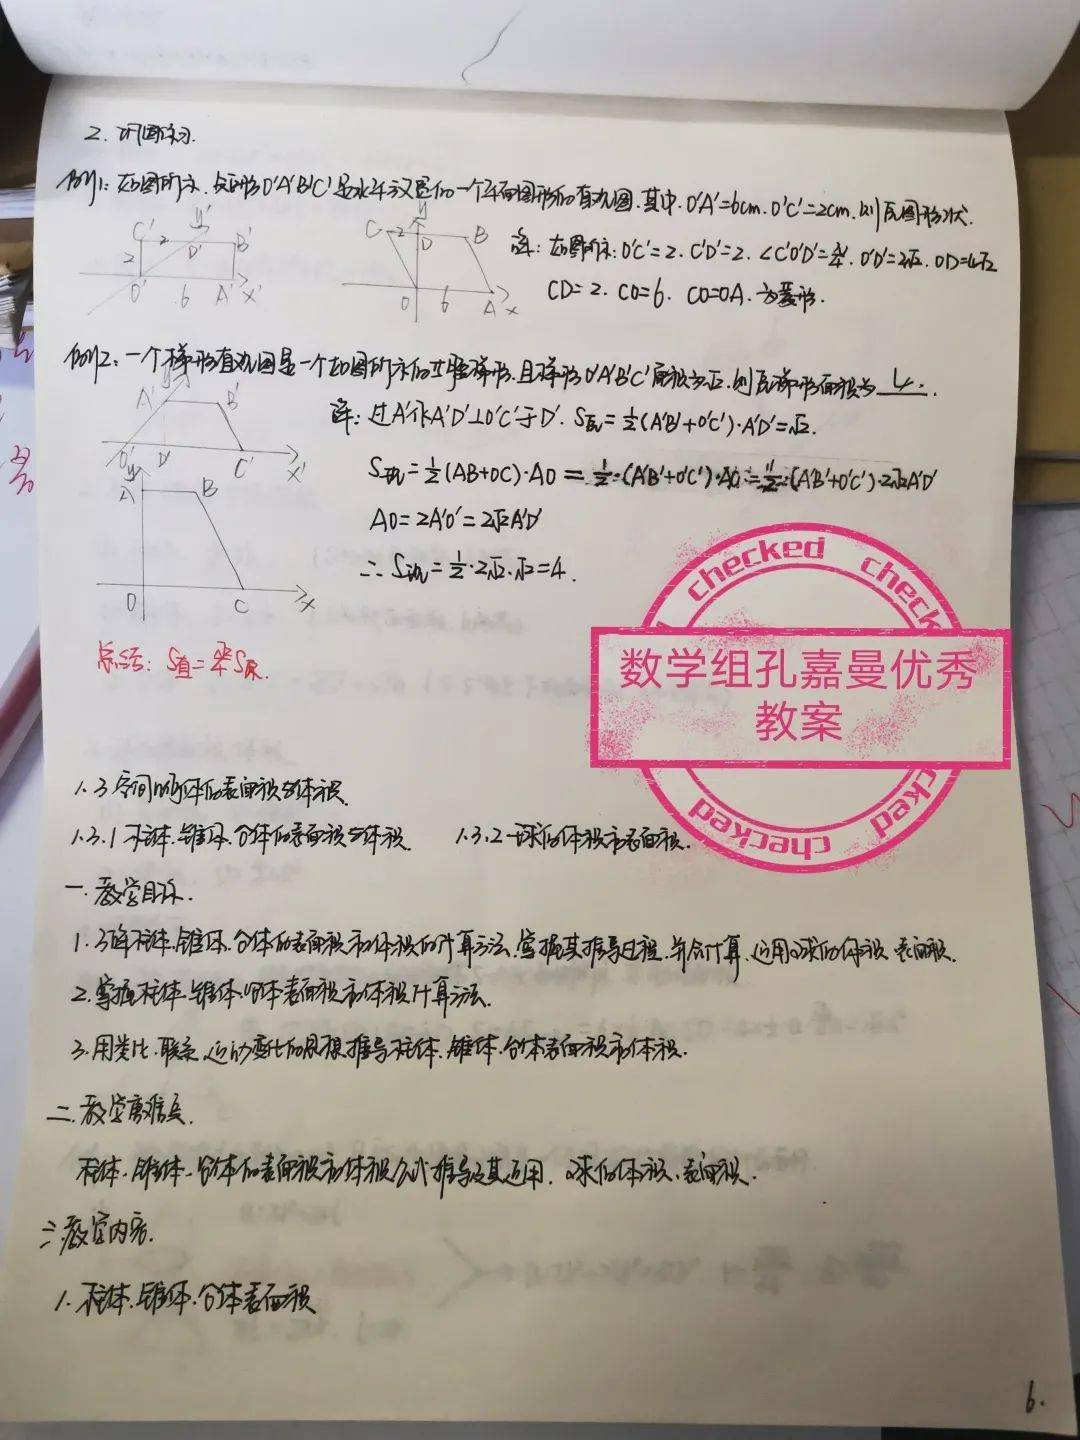 2. 巩固练习.
例1: 如图所示, 矩形O'A'B'C'是水平放置的一个平面图形的直观图, 其中, O'A'=6cm, O'C'=2cm, 则原图形形状.
C' 2 y' B'
D'
2
O' 6 A' x'
C 2 y B
D
O 6 A x
解: 如图所示: O'C'=2. C'D'=2. ∠C'O'D'=π/4. O'D'=2√2. OD=4√2
CD=2. CO=6. CO=OA. 为菱形.
例2: 一个梯形直观图是一个如图所示的等腰梯形, 且梯形O'A'B'C'面积为√2, 则原梯形面积为 4 .
A' B'
O' D' C' x'
y
A B
O C x
解: 过A'作A'D'⊥O'C'于D'. S直=1/2(A'B'+O'C')·A'D'=√2.
S原=1/2(AB+OC)·AO=1/2·(A'B'+O'C')·AO=1/2·(A'B'+O'C')·2√2A'D'
AO=2A'O'=2√2A'D'
∴S原=1/2·2√2·√2=4.
总结: S直=√2/4 S原.
checked checked
数学组孔嘉曼优秀
教案
checked checked
1.3 空间几何体的表面积与体积
1.3.1 柱体、锥体、台体的表面积与体积. 1.3.2 球的体积和表面积.
一. 教学目标.
1. 了解柱体、锥体、台体的表面积和体积的计算方法, 掌握其推导过程, 并会计算, 运用球的体积、表面积.
2. 掌握柱体、锥体、台体表面积和体积计算方法.
3. 用类比、联系、运动变化的思想推导柱体、锥体、台体表面积和体积.
二. 教学重难点.
柱体、锥体、台体的表面积和体积公式推导及其运用, 球的体积、表面积.
三. 教学内容.
1. 柱体、锥体、台体表面积
6.